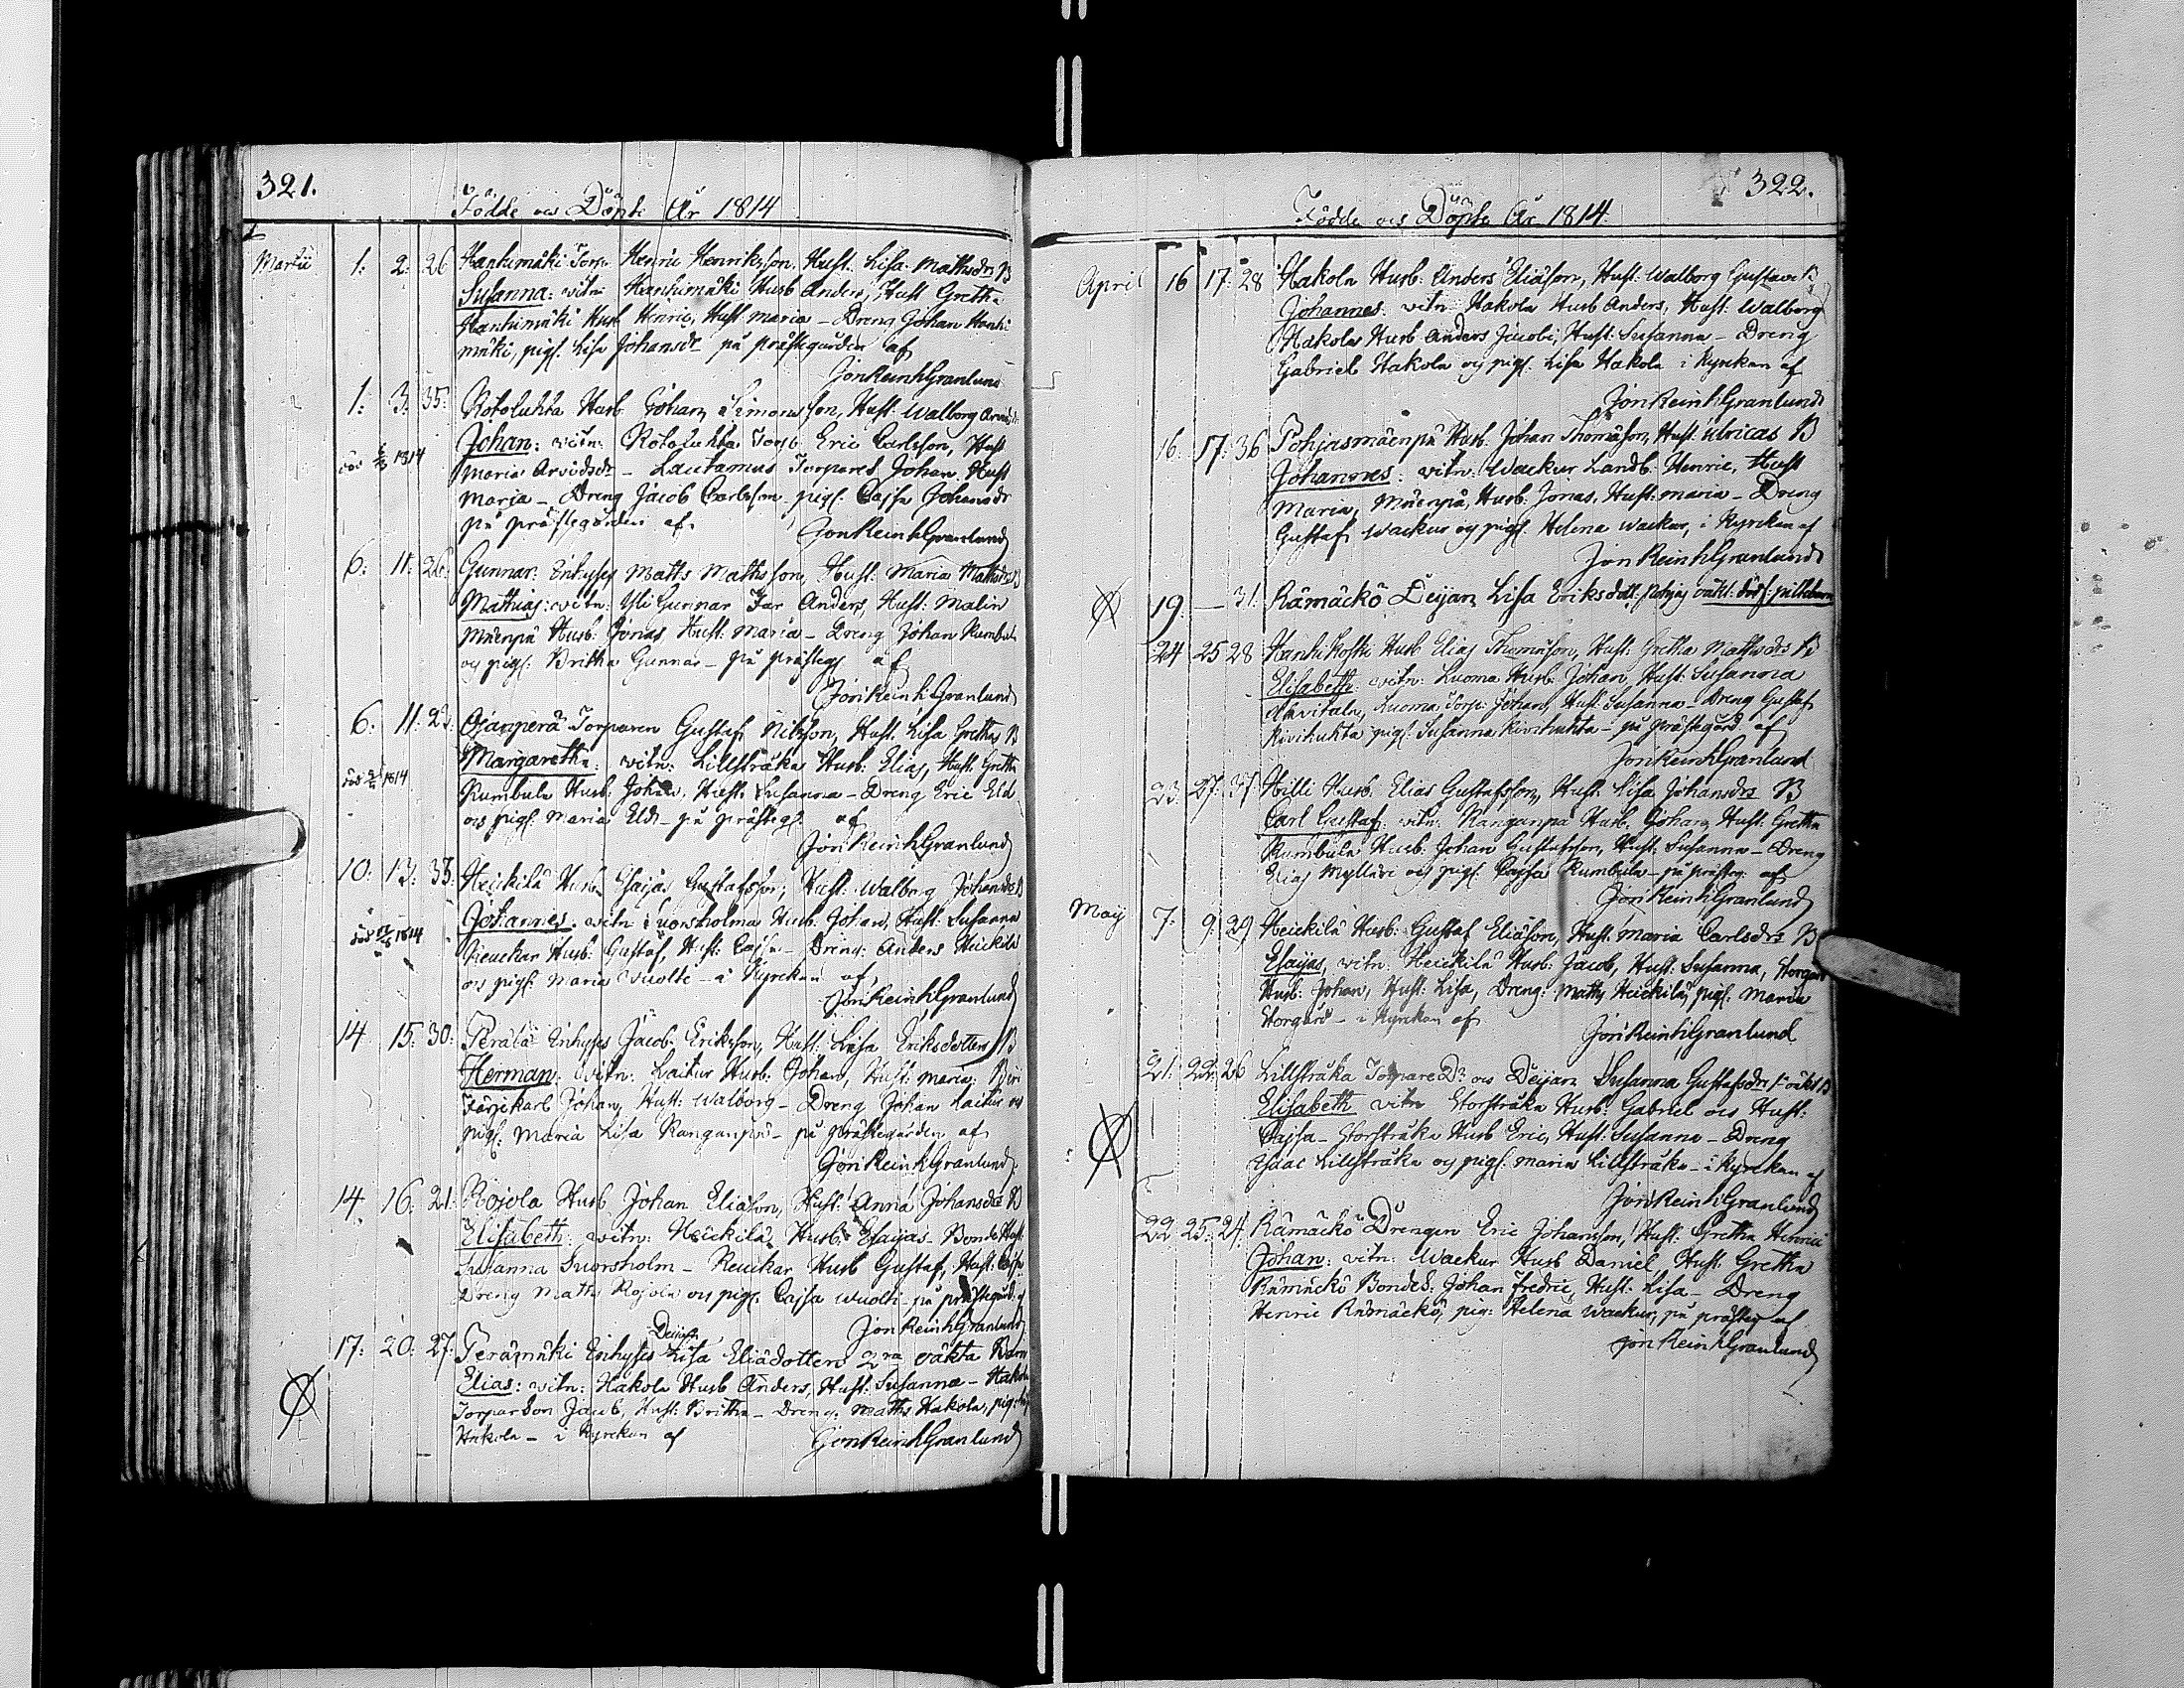 321.
Födde och Döpte År 1814
Martii 1: 2: 26 Hanhimäki Torp. Henric Henriksson, Hust. Lisa Mathsdrs B
Susanna: witn: Hanhimäki Husb Anders, Hust Gretha
Hanhimäki Husb Henric, Hust: Maria - Dreng Johan Hanhi
mäki, pig. Lisa Johansdr på prästegården af
Jon Reinh Granlund
1: 3: 35: Husb Johan Simonsson, Hust. Walborg
Johan: witn: Torp. Eric Carlsson, Hust
död 1814
Maria Arvidsdr - Lautamus Torpares Johan, Hust
Maria - Dreng Jacob Carlsson pig. Cajsa Johansdr
på prästegården af Jon Reinh Granlund
6: 11: 26: Gunnar: Enhyses Matts Mathsson, Hust: Maria Mathsdrs B
Mathias: witn: Yli Gunnar Anders, Hust: Malin
Mäenpä Husb: Jonas, Hust: Maria - Dreng Johan Rumbula
och pig. Britha Gunnar - på prästeg af
Jon Reinh Granlund
6: 11: Ojanperä Torparen Gustaf Nilsson, Hust. Lisa Grethas B
Margaretha: witn: Lillsträka Husb: Elias, Hust. Gretha
död 1814
Rumbula Husb: Johan, Hust: Susanna - Dreng Eric Eld
och pig. Maria Eld - på prästeg: af
Jon Reinh Granlund
10: 13: 33: Heickilä Husb. Esaijas Gustafsson, Hust: Walborg Johansdr B
Johannes: witn: Suorsholma Husb. Johan, Hust: Susanna
död 1814
Reuckar Husb: Gustaf, Hust: Cajsa - Dreng: Anders Heickilä
och pig. Maria Wuolti - i Kyrckan af
Jon Reinh Granlund
14 15: 30: Perälä Enhyses Jacob Eriksson, Hust: Lisa Eriksdotters B
Herman: witn: Laitur Husb: Johan, Hust: Maria:
Färjekarl Johan, Hust: Walborg - Dreng Johan Laitur och
pig. Maria Lisa Kanganpä - på prästegården af
Jon Reinh Granlund
14. 16: 21: Rojola Husb Johan Eliäson, Hust: Anna Johansdrs B
Elisabeth: witn: Heickilä Husb: Esaijas Bonde Hust.
Susanna Suorsholm - Reuckar Husb Gustaf, Hust: Cajsa
Dreng Maths Rojola och pig. Cajsa Wuolti - på prästegård: af
Jon Reinh Granlund
17: 20: 27: Perämäki Enhyses Deijan Lisa Eliädotters 2ra oäkta Barn
Elias: witn: Hakola Husb Anders, Hust: Susanna - Hakola
Torparson Jacob, Hust: Britha - Dreng: Maths Hakola, pig:
Hakola - i Kyrckan af Jon Reinh Granlund
322.
Födde och Döpte År 1814
April 16 17: 28 Hakola Husb: Anders Eliäson, Hust: Walborg Gustavi B
Johannes: witn: Hakola Husb Anders, Hust: Walborg
Hakolas Husb Anders Jacobi, Hust: Susanna - Dreng
Gabriel Hakola och pig. Lisa Hakola i Kyrckan af
Jon Reinh Granlund
16: 17: 36 Pohjasmäenpä Husb. Johan Thomäson, Hust: Ulricas B
Johannes: witn: Wackur Landb. Henric, Hust
Maria, Mäenpä, Husb: Jonas, Hust: Maria - Dreng
Gustaf Wackur och pig. Helena Wackur, i Kyrckan af
Jon Reinh Granlund
19: — 31: Rämäckö Deijan Lisa Eriksdott.
24 25 28 Hanhikoski Husb Elias Thomäson, Hust: Gretha Mathsdrs B
Elisabeth: witn: Luoma Husb: Johan, Hust: Susanna
Luoma Torp: Johan, Hust: Susanna - Dreng Gustaf
Kivihuhta pig. Susanna Kivihuhta - på prästegård af
Jon Reinh Granlund
23: 27: 37 Hilli Husb. Elias Gustafsson, Hust. Lisa Johansdrs B
Carl Gustaf: witn: Kanganpä Husb. Johan, Hust: Gretha
Rumbula Husb: Johan Gustafsson, Hust: Susanna - Dreng
Elias Mylläri och pig. Cajsa Rumbula - på prästeg: af
Jon Reinh Granlund
Maij 7: 9: 29 Heickilä Husb: Gustaf Eliäson, Hust: Maria Carlsdrs B
Esaijas, witn: Heickilä Husb: Jacob, Hust: Susanna, Storgård
Husb: Johan, Hust: Lisa, Dreng: Maths Heickilä, pig: Maria
Storgård - i Kyrckan af Jon Reinh Granlund
21: 22: 26 Lillsträka Torpare Dr och Deijan Susanna Gustafsdrs 1: oäkt B
Elisabeth witn Storsträka Husb: Gabriel och Hust:
Cajsa - Storsträka Husb Eric, Hust: Susanna - Dreng
Isaac Lillsträka och pig. Maria Lillsträka - i Kyrckan af
Jon Reinh Granlund
22 25: 24: Rämäckö Drengen Eric Johansson, Hust: Gretha Henrici
Johan: witn: Wackur Husb Daniel, Hust: Gretha
Rämäckö Bondes: Johan Fredric, Hust: Lisa - Dreng
Henric Rämäckö, pig: Helena Wackur, på prästeg af
Jon Reinh Granlund